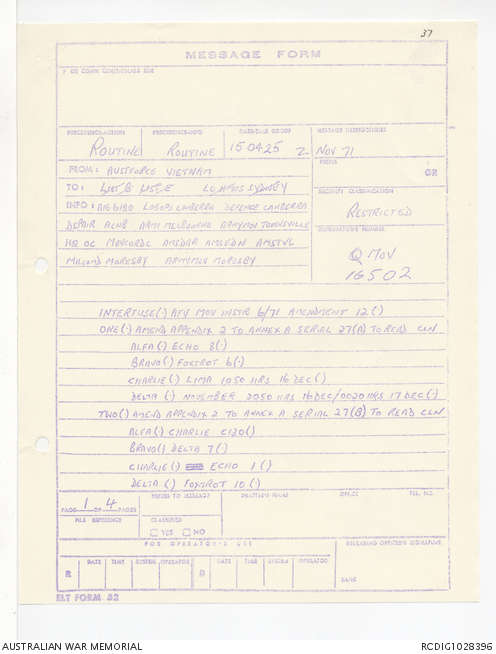 37
MESSAGE FORM
PRECEDENCE-ACTION PRECEDENCE-INFO DATE-TIME GROUP MESSAGE INSTRUCTIONS
ROUTINE ROUTINE 150425 Z NOV 71
FROM: AUSTFORCE VIETNAM
PREFIX GR
TO: LOGOPS SYDNEY
SECURITY CLASSIFICATION
INFO: LOGOPS CANBERRA DEFENCE CANBERRA
RESTRICTED
DEPAIR ACNB ARMY MELBOURNE TOWNSVILLE
ORIGINATORS NUMBER
HQ OC AMSDAR
MORESBY MORESBY
Q MOV
16502
INTERFUSE(.) AFV MOV INSTR 6/71 AMENDMENT 12 (.)
ONE(.) AMEND APPENDIX 2 TO ANNEX A SERIAL 27(A) TO READ CLN
ALFA(.) ECHO 8(.)
BRAVO(.) FOXTROT 6(.)
CHARLIE(.) LIMA 1050 HRS 16 DEC(.)
DELTA(.) NOVEMBER 2050 HRS 16 DEC/0020 HRS 17 DEC(.)
TWO(.) AMEND APPENDIX 2 TO ANNEX A SERIAL 27(B) TO READ CLN
ALFA(.) CHARLIE C130(.)
BRAVO(.) DELTA 7(.)
CHARLIE(.) ECHO 1(.)
DELTA(.) FOXTROT 10(.)
PAGE 1 OF 4 PAGES
REFERS TO MESSAGE DRAFTERS NAME OFFICE TEL. NO.
FILE REFERENCE CLASSIFIED
YES NO
FOR OPERATOR'S USE RELEASING OFFICERS SIGNATURE
R DATE TIME SYSTEM OPERATOR D DATE TIME SYSTEM OPERATOR
NAME
ELT FORM 82
AUSTRALIAN WAR MEMORIAL RCDIG1028396